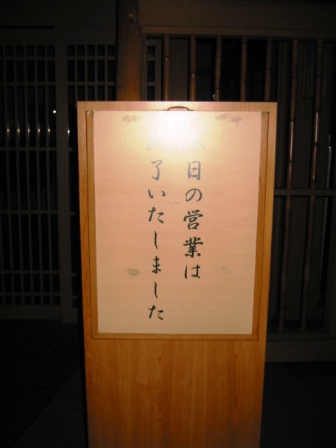 日の営業は
了いたしました